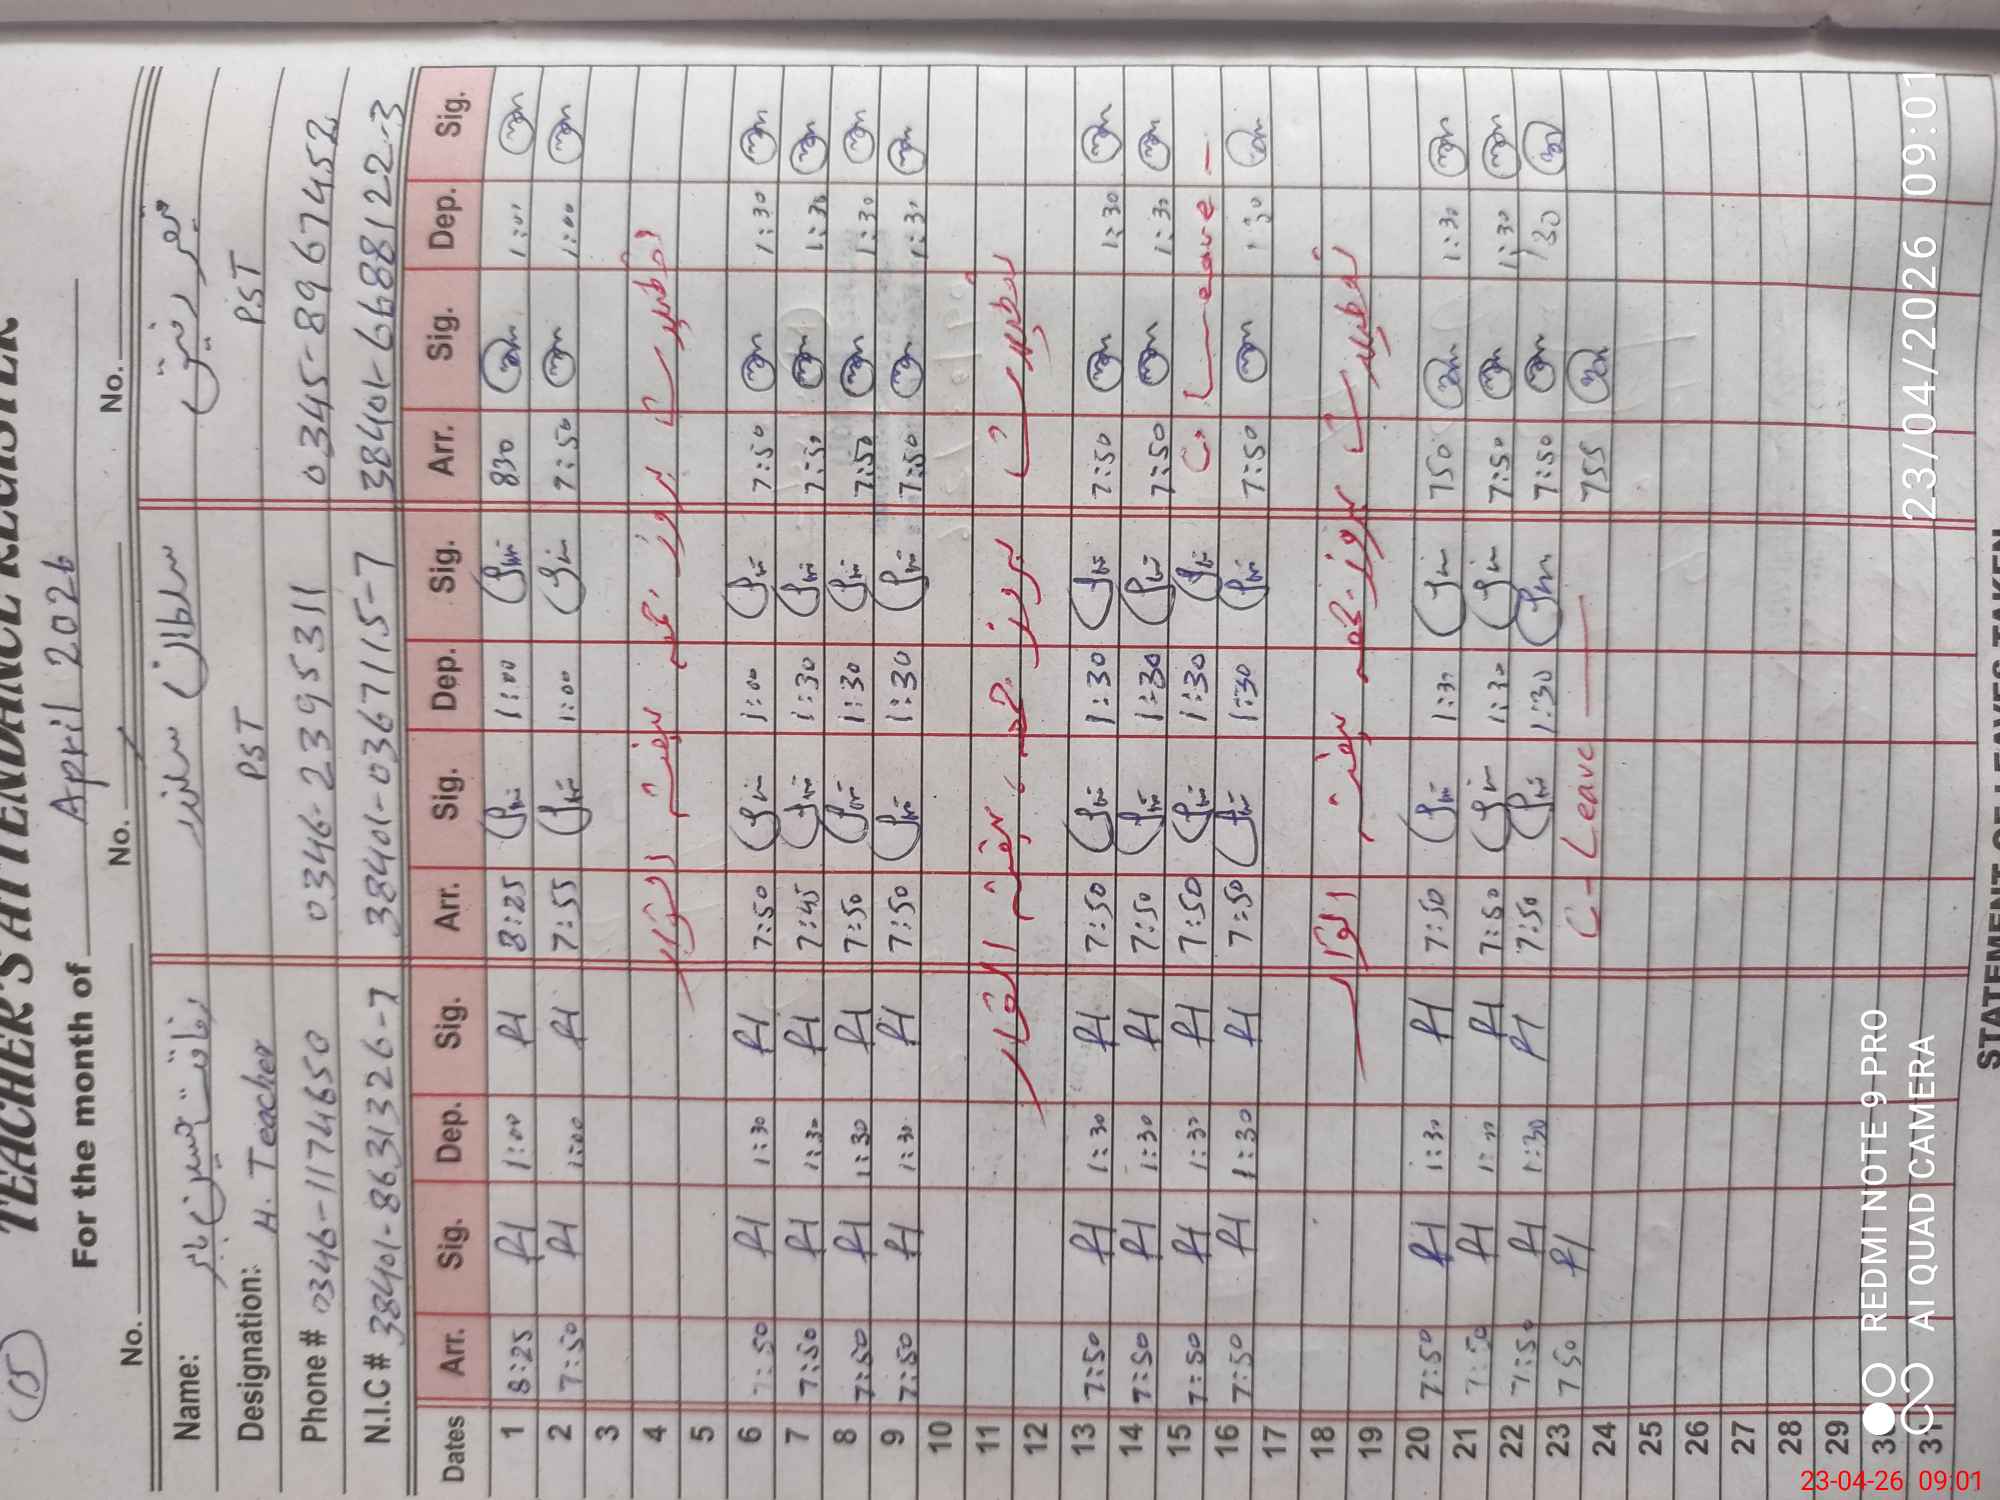 15
TEACHER'S ATTENDANCE REGISTER
For the month of April 2026
No. No. No.
Name: رفاقت حسین بابر سلطان سکندر قیصر رفیق
Designation: H. Teacher PST PST
Phone # 0346-1174650 0346-2395311 0345-8967452
N.I.C # 38401-8631326-7 38401-0367115-7 38401-6688122-3
Dates Arr. Sig. Dep. Sig. Arr. Sig. Dep. Sig. Arr. Sig. Dep. Sig.
1 8:25 1:00 8:25 1:00 830 1:00
2 7:50 1:00 7:55 1:00 7:50 1:00
3
4 اتوار ہفتہ بروز جمعہ تعطیلات
5
6 7:50 1:30 7:50 1:00 7:50 1:30
7 7:50 1:30 7:45 1:30 7:50 1:30
8 7:50 1:30 7:50 1:30 7:50 1:30
9 7:50 1:30 7:50 1:30 7:50 1:30
10
11 اتوار ہفتہ، جمعہ بروز تعطیلات
12
13 7:50 1:30 7:50 1:30 7:50 1:30
14 7:50 1:30 7:50 1:30 7:50 1:30
15 7:50 1:30 7:50 1:30 C. Leave
16 7:50 1:30 7:50 1:30 7:50 1:30
17
18 اتوار ہفتہ بروز جمعہ تعطیلات
19
20 7:50 1:30 7:50 1:30 750 1:30
21 7:50 1:30 7:50 1:30 7:50 1:30
22 7:50 1:30 7:50 1:30 7:50 1:30
23 750 C- Leave 755
24
25
26
27
28
29
30
31
STATEMENT OF LEAVES TAKEN
REDMI NOTE 9 PRO
AI QUAD CAMERA
23/04/2026 09:01
23-04-26 09:01